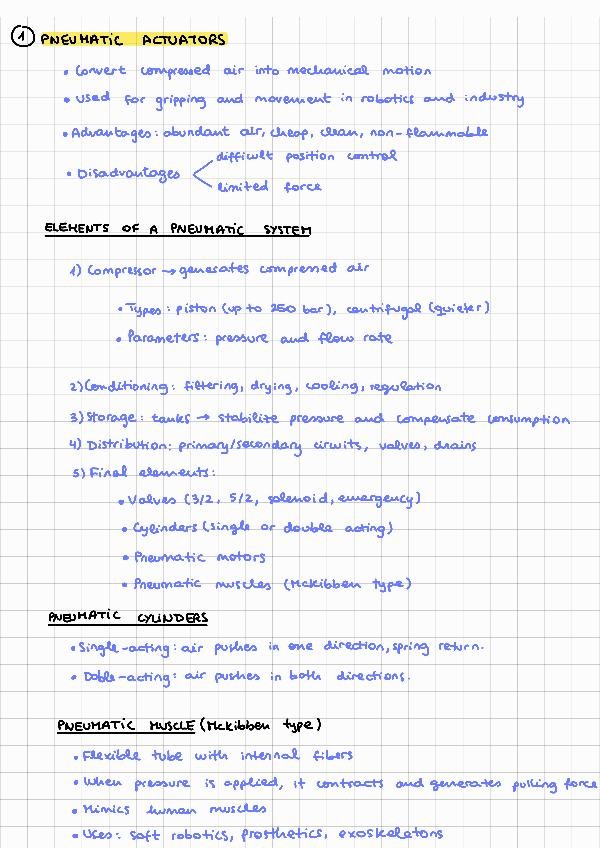 1 PNEUMATIC ACTUATORS
• Convert compressed air into mechanical motion
• Used for gripping and movement in robotics and industry
• Advantages: abundant air, cheap, clean, non-flammable
difficult position control
• Disadvantages
limited force
ELEMENTS OF A PNEUMATIC SYSTEM
1) Compressor → generates compressed air
• Types: piston (up to 250 bar), centrifugal (quieter)
• Parameters: pressure and flow rate
2) Conditioning: filtering, drying, cooling, regulation
3) Storage: tanks → stabilize pressure and compensate consumption
4) Distribution: primary/secondary circuits, valves, drains
5) Final elements:
• Valves (3/2, 5/2, solenoid, emergency)
• Cylinders (single or double acting)
• Pneumatic motors
• Pneumatic muscles (McKibben type)
PNEUMATIC CYLINDERS
• Single-acting: air pushes in one direction, spring return.
• Doble-acting: air pushes in both directions.
PNEUMATIC MUSCLE (McKibben type)
• Flexible tube with internal fibers
• When pressure is applied, it contracts and generates pulling force
• Mimics human muscles
• Uses: soft robotics, prosthetics, exoskeletons